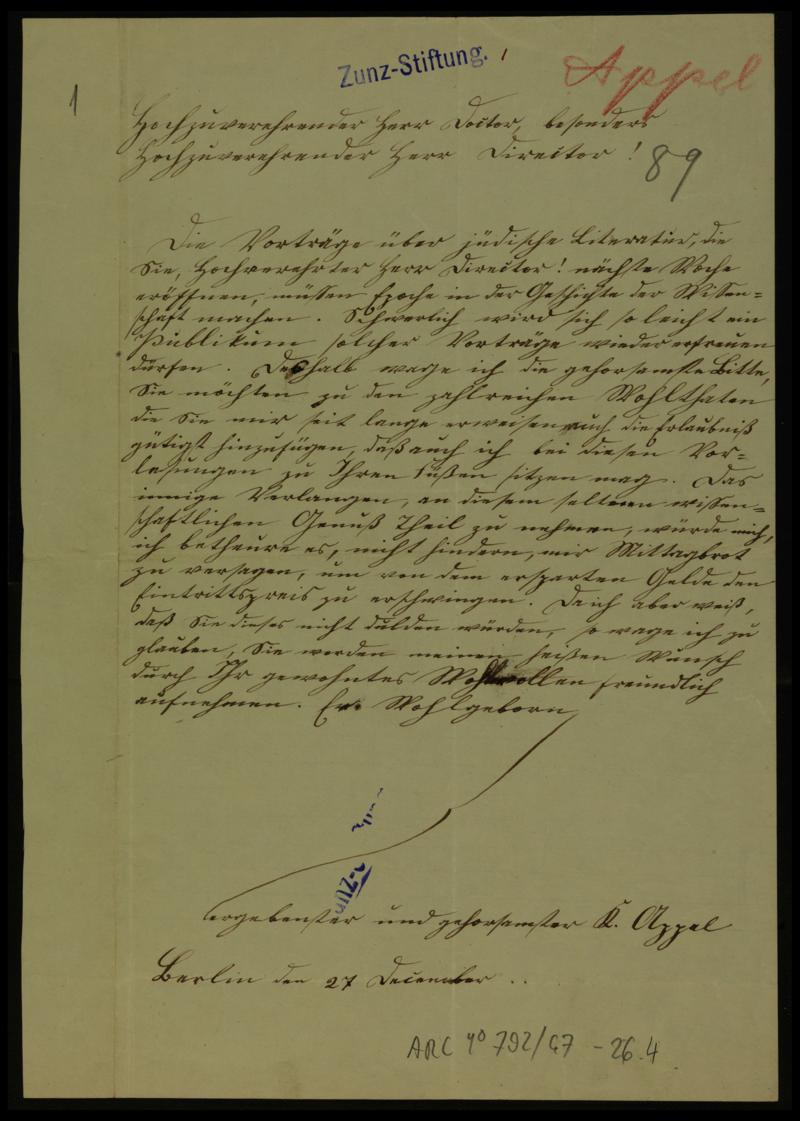 Zunz-Stiftung.
Appel
1
Hochzuverehrender Herr Doctor, besonders
Hochzuverehrender Herr Director!
89
Die Vorträge über jüdische Literatur, die
Sie, Hochverehrter Herr Director! nächste Woche
eröffnen, müssen Epoche in der Geschichte der Wissen=
schaft machen. Schwerlich wird sich so leicht ein
Publikum solcher Vorträge wieder erfreuen
dürfen. Deshalb wage ich die gehorsamste Bitte,
Sie möchten zu den zahlreichen Wohlthaten
die Sie mir seit lange erweisen, auch die Erlaubniß
gütigst hinzufügen, daß auch ich bei diesen Vor=
lesungen zu Ihren Füßen sitzen mag. Das
innige Verlangen, an diesem seltenen wissen=
schaftlichen Genuß Theil zu nehmen, würde mich,
ich betheure es, nicht hindern, mir Mittagbrot
zu versagen, um von dem ersparten Gelde den
Eintrittspreis zu erschwingen. Da ich aber weiß,
daß Sie dieses nicht dulden würden, so wage ich zu
glauben, Sie werden meinen heißen Wunsch
durch Ihr gewohntes Wohlwollen freundlich
aufnehmen. Ew. Wohlgeborn
ergebenster und gehorsamster K. Appel
Berlin den 27 December ..
ARC 4° 792/G7 - 26.4